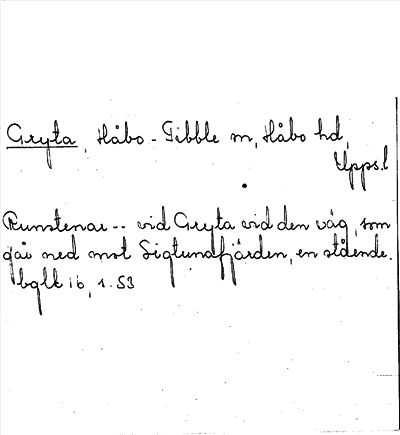 Gryta, Håbo-Tibble sn, Håbo hd,
Upps.l
Runstenar -- vid Gryta vid den väg, som
går ned mot Sigtunafjärden, en stående.
bglk ib, 1. S3